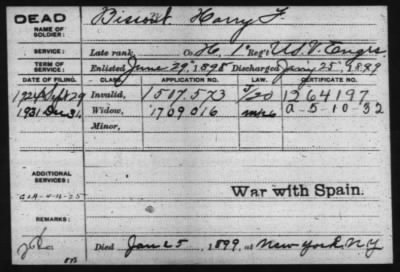 DEAD
NAME OF SOLDIER: Bissont, Harry F.
SERVICE: Late rank, Co. H, 1" Reg't U.S.V. Engrs
TERM OF SERVICE: Enlisted June 29, 1898 Discharged Jany 25, 1899
DATE OF FILING. CLASS. APPLICATION NO. LAW. CERTIFICATE NO.
1924 Sept 29 Invalid, 1517.573 1264197
1931 Dec 31 Widow, 1709016 A-5-10-32
Minor,
ADDITIONAL SERVICES:
War with Spain.
REMARKS:
Died Jan 25, 1899, at New York, NY